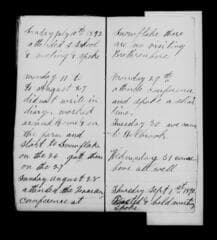 Sunday July 10th 1892
attended S School
& meeting & spoke
Monday 11 to
August 27
did not write in
diary. worked
around Home & on
the farm and
start to Snowflake
on the 26 got there
on the 27
Sunday August 28
attended the
conference at
Snowflake there
are no visiting
Brethren here
Monday 29th
attend conference
and spoke a short
time.
Tuesday 30 we came
to
Wednesday 31 came
home all well
Thursday Sept 1st 1892
& held meeting
spoke